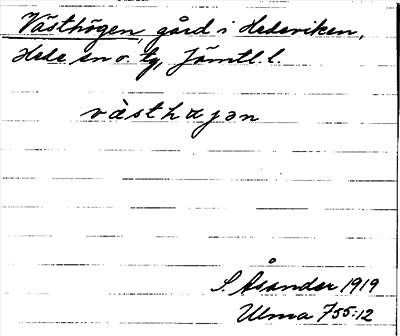 Västhögen, gård i Hedeviken,
Hede sn o. tg, Jämtl. l.
västhøjən
S. Åsander 1919
Ulma 755:12